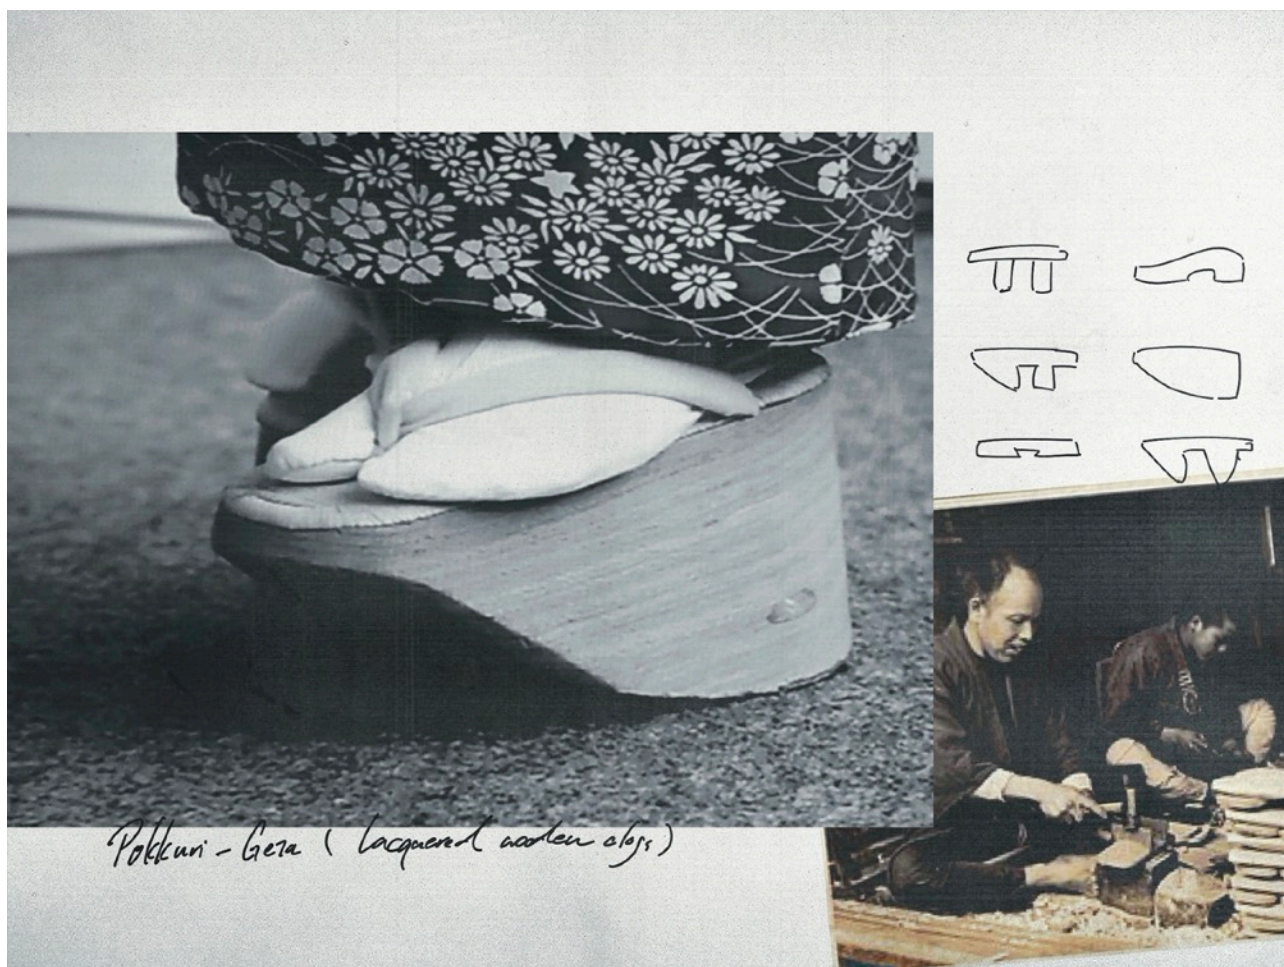 Pokkuri - Geta ( Lacquered wooden clogs )